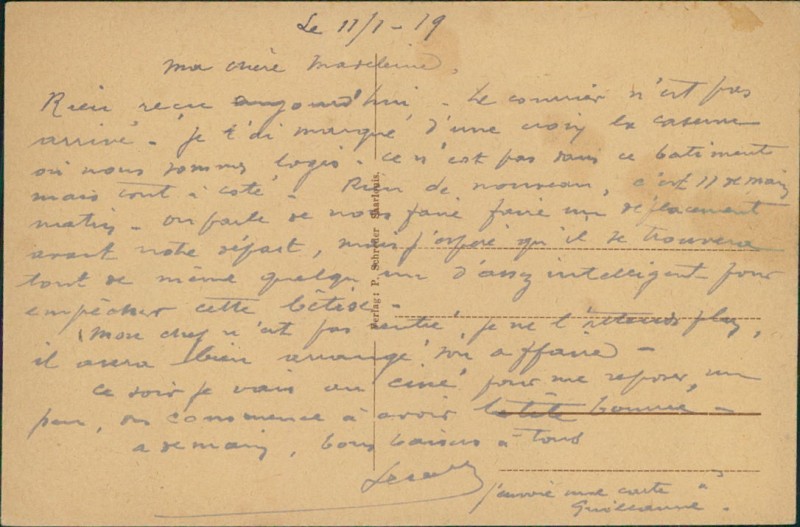 Le 11/1-19
Ma chère Madeleine,
Rien reçu aujourd'hui - Le courrier n'est pas
arrivé - je t'ai marqué d'une croix la caserne
où nous sommes logés - ce n'est pas dans ce batiment
mais tout à coté - Rien de nouveau, c'est demain
matin - on parle de nous faire faire un déplacement
avant notre départ, mais j'espère qu'il se trouvera
tout de même quelqu'un d'assez intelligent pour
empêcher cette bêtise -
Mon chef n'est pas rentré, je ne l'attends plus,
il aura bien arrangé son affaire -
Ce soir je vais au ciné pour me reposer un
peu, on commence à avoir la tête bourrée -
a demain, bons baisers à tous
j'envoie une carte à
Guillaume -
Verlag: P. Schreder Saarlouis.